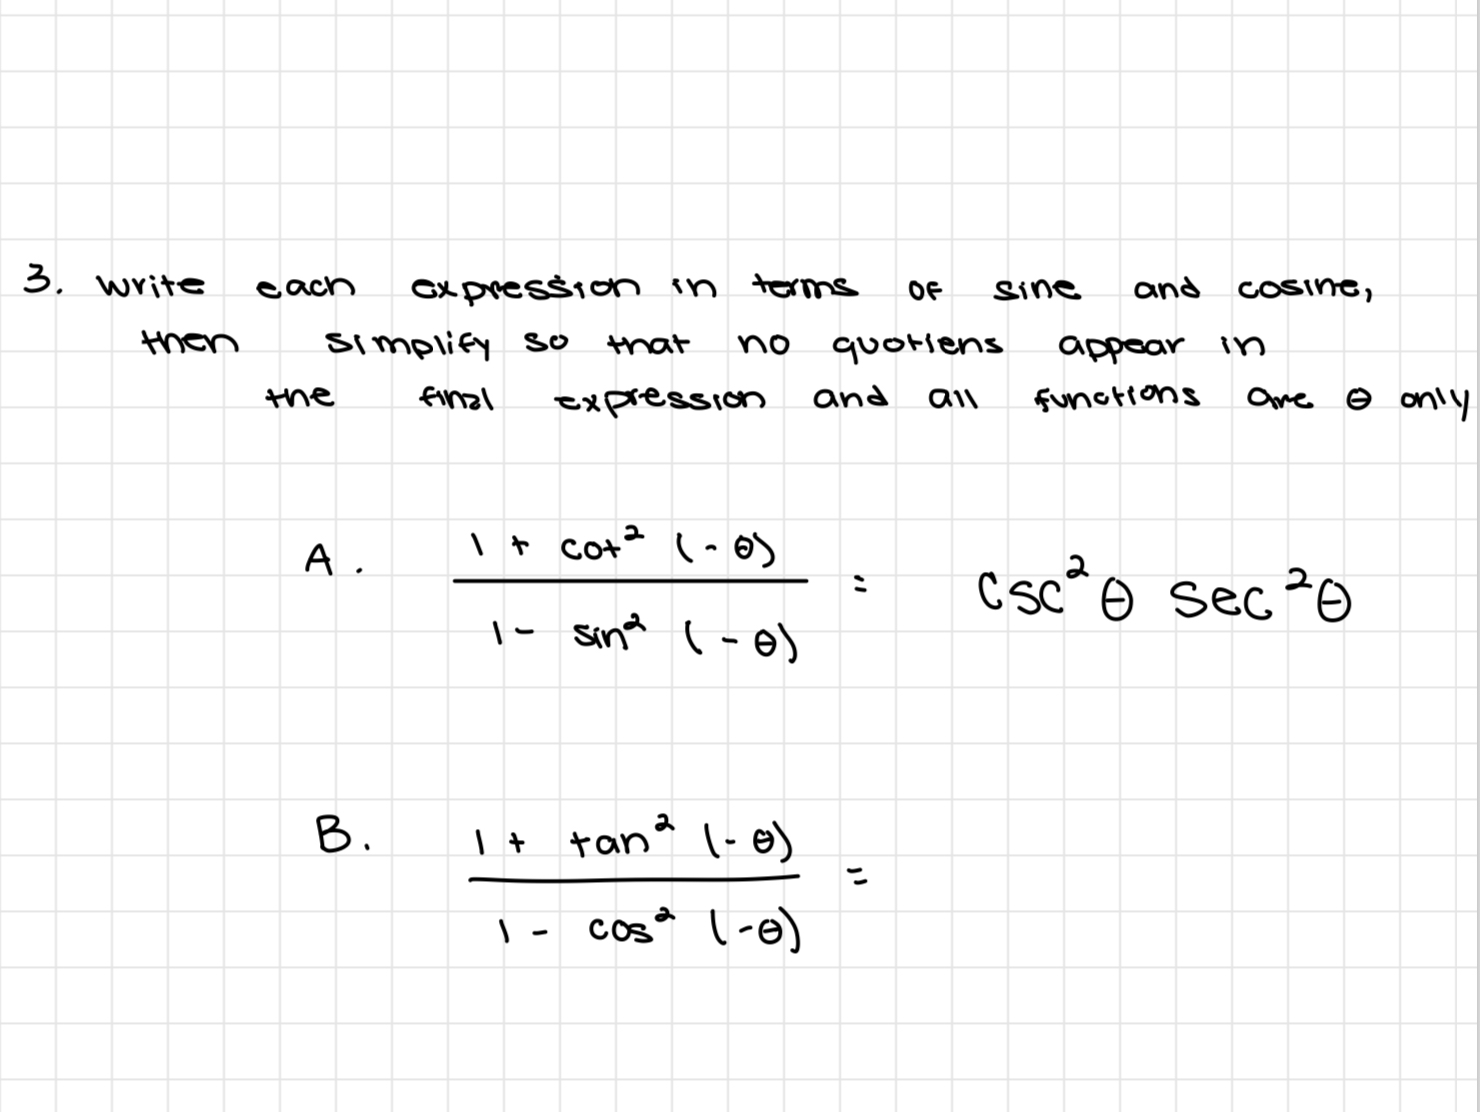 3. write each expression in terms of sine and cosine,
then simplify so that no quotiens appear in
the final expression and all functions are θ only
A. (1 + cot² (-θ)) / (1 - sin² (-θ)) = csc²θ sec²θ
B. (1 + tan² (-θ)) / (1 - cos² (-θ)) =